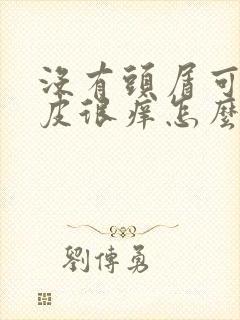 沒有頭屑可
皮很痒怎麼
劉傳勇